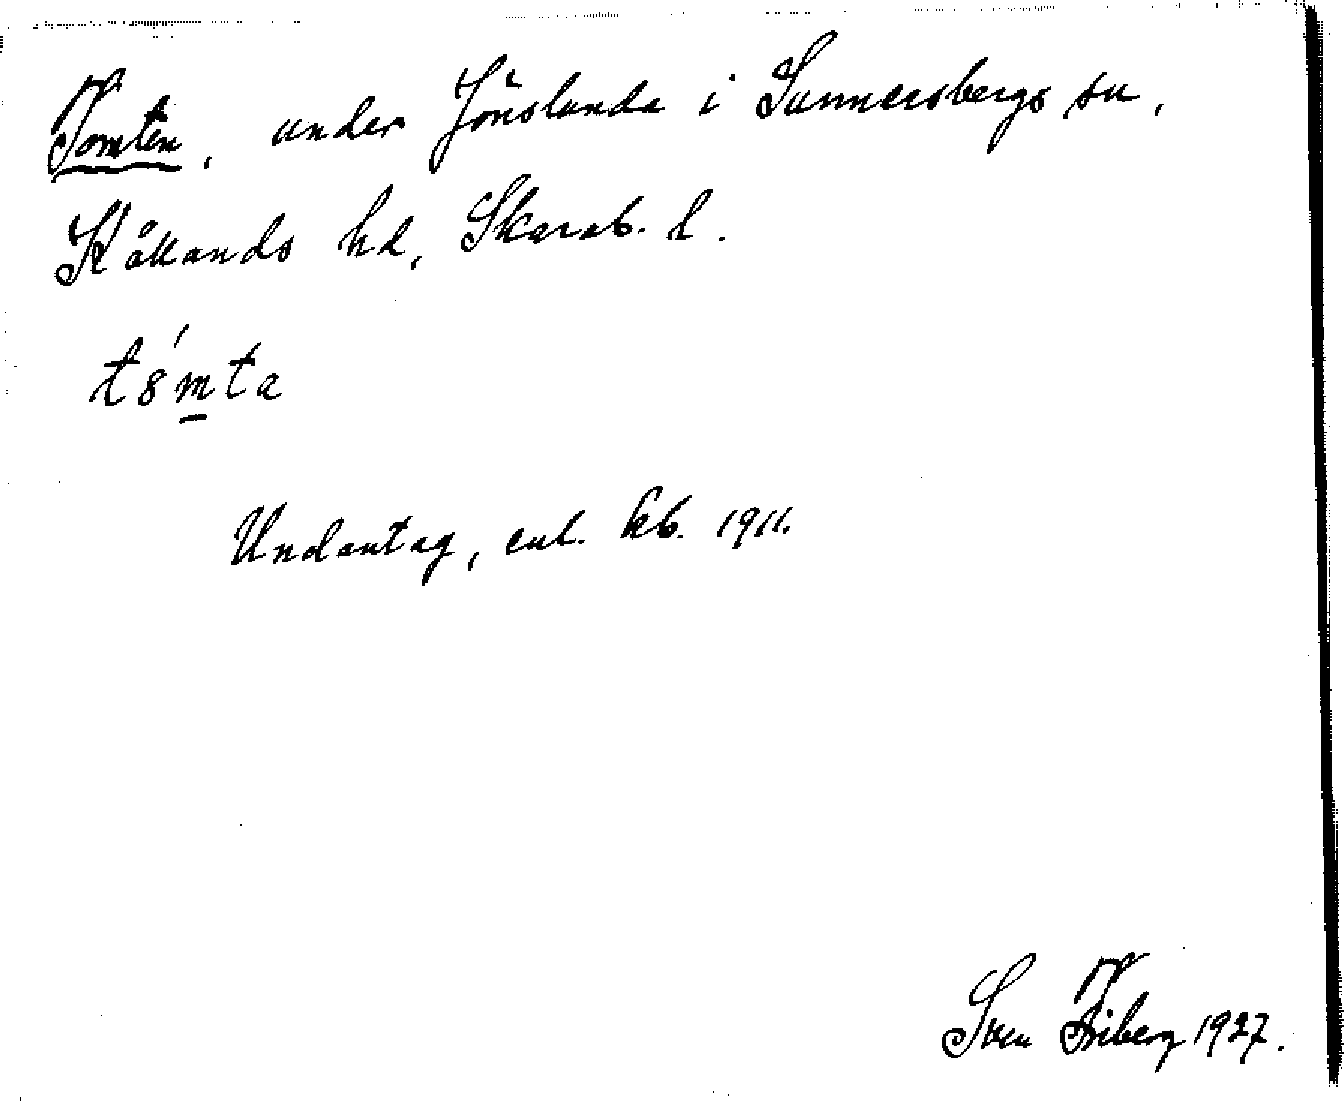 Tomten, under Jönslunda i Sunnersbergs sn,
Kållands hd, Skarab. l.
t8́mta
Undantag, enl. kb. 1911.
Sven Friberg 1927.